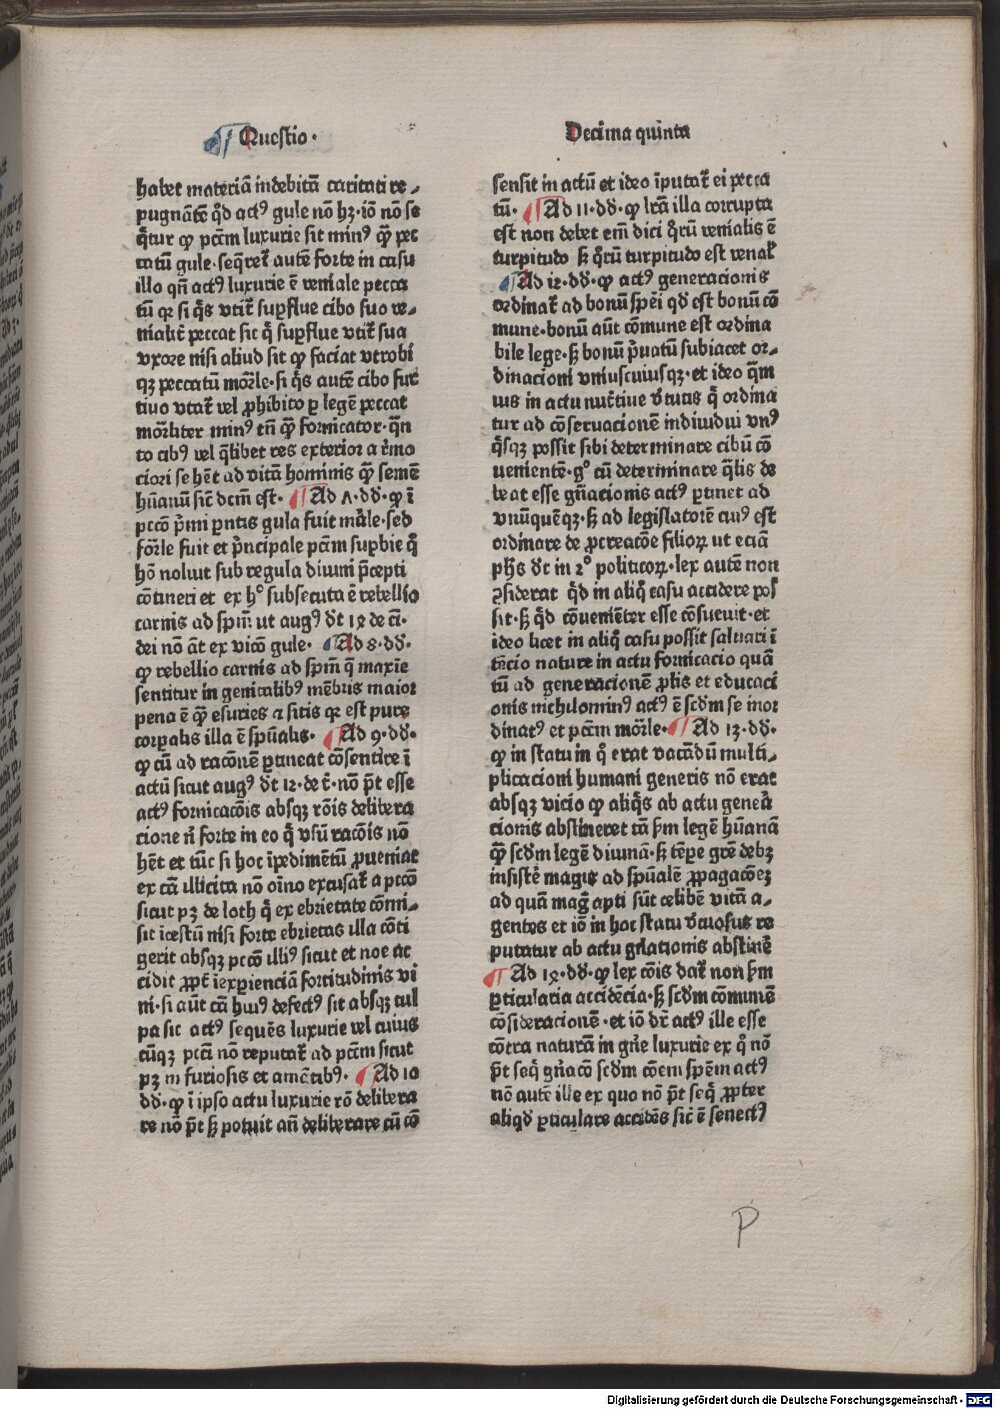 Questio·
Decima quinta
habet materiā indebitā caritati re-
pugnātē qd̄ actꝰ gule nō hꝫ·iō nō se
q̄tur ꝙ pctm̄ luxurie sit minꝰ qꝫ̄ pec
catū gule·seq̄ret̄ autē forte in casu
illo qn̄ actꝰ luxurie ē veniale pecca
tū qr si q̄s vtit̄ suꝑflue cibo suo ve-
nialit̄ peccat sic q̄ suꝑflue vtit̄ sua
vxore nisi aliud sit ꝙ faciat vtrobi
qꝫ peccatū mor̄le·si q̄s autē cibo fur
tiuo vtat̄ vel ꝓhibito ꝑ legē peccat
mor̄liter minꝰ tn̄ qꝫ̄ fornicator·q̄n
to cibꝰ vel q̄libet res exterior a r̄mo
ciori se hēt ad vitā hominis qꝫ̄ semē
hūanū sic̄ dcm̄ est· Ad ʌ·dd̄·ꝙ ī
pccō p̄mi ꝑntis gula fuit mār̄le·sed
for̄le fuit et p̄ncipale pctm̄ suꝑbie q̄
hō noluit sub regula diuini p̄cepti
cōtineri et ex hº subsecuta ē rebellio
carnis ad spm̄ ut augꝰ dt̄ 1ꝝ de ci̅·
dei nō āt ex vicō gule· Ad 8·dd̄·
ꝙ rebellio carnis ad spm̄ q̄ maxīe
sentitur in genitalibꝰ mēbris maior
pena ē qꝫ̄ esuries ⁊ sitis qr est pure
corꝑalis illa ē spūalis· Ad 9·dd̄·
ꝙ cū ad racōnē ꝑtineat cōsentire ī
actū sicut augꝰ dt̄ 12·de t̄·nō pt̄ esse
actꝰ fornicacōis absqꝫ rōis delibera
cione n̄ forte in eo q̄ vsū racōis nō
hēt et tūc si hoc īpedimētū ꝓueniat
ex cā illicita nō oīno excusat̄ a pccō
sicut pꝫ de loth q̄ ex ebrietate cōmi-
sit īcestū nisi forte ebrietas illa cōti
gerit absqꝫ pccō illiꝰ sicut et noe ac
cidit ꝓpt̄ īexꝑienciā fortitudinis vi
ni·si aūt cā huiꝰ defectꝰ sit absqꝫ cul
pa sic actꝰ sequēs luxurie vel cuius
cūqꝫ pcti̅ nō reputat̄ ad pctm̄ sicut
pꝫ in furiosis et amētibꝰ· Ad 10
dd̄·ꝙ ī ipso actu luxurie rō delibera
re nō pt̄ sꝫ potuit an̄ deliberare cū cō
sensit in actū et ideo īputat̄ ei pecca
tū· Ad 11·dd̄·ꝙ lr̄a illa corrupta
est non debet em̄ dici q̄rū venialis ē
turpitudo sꝫ q̄rū turpitudo est venal̄
Ad 12·dd̄·ꝙ actꝰ generacionis
ordinat̄ ad bonū spēi qd̄ est bonū cō
mune·bonū aūt cōmune est ordina
bile lege·sꝫ bonū p̄uatū subiacet or-
dinacioni vniuscuiusqꝫ·et ideo q̄m
uis in actu nut̄tiue v̄tutis q̄ ordina
tur ad cōseruacionē indiuidui vnꝰ
q̄sqꝫ possit sibi determinare cibū cō
uenientē·gº cū determinare q̄lis de
beat esse gn̄acionis actꝰ ꝑtinet ad
vnūquēqꝫ·sꝫ ad legislatorē cuiꝰ est
ordinare de ꝓcreacōe filioꝝ ut eciā
ph̄s dt̄ in 2º politicoꝝ·lex autē non
ꝯsiderat qd̄ in aliq̄ casu accidere pos
sit·sꝫ qd̄ cōueniēter esse cōsueuit·et
ideo licet in aliq̄ casu possit saluari ī
tēcio nature in actu fornicacio quā
tū ad generacionē ꝓlis et educaci
onis nichilominꝰ actꝰ ē scd̄m se inor
dinatꝰ et pctm̄ mor̄le· Ad 13·dd̄·
ꝙ in statu in q̄ erat vacādū multi-
plicacioni humani generis nō erat
absqꝫ vicio ꝙ aliq̄s ab actu gener̄a
cionis abstineret tā sm̄ legē hūanā
qꝫ̄ scd̄m legē diuinā·sꝫ tēpe gr̄e debꝫ
insistē magis ad spūalē ꝓpagacōeꝫ
ad quā maḡ apti sūt celibē vitā a-
gentes et iō in hoc statu v̄tuosus re
putatur ab actu gn̄ationis abstinē
Ad 1ꝝ·dd̄·ꝙ lex cōis dat̄ non sm̄
ꝑticularia accidēcia·sꝫ scd̄m cōmunē
cōsideracionē·et iō dr̄ actꝰ ille esse
cōtra naturā in gn̄e luxurie ex q̊ nō
pt̄ seq̄ gn̄acō scd̄m cōem spēm actꝰ
nō autē ille ex quo nō pt̄ seq̄ ꝓpter
aliqd̄ ꝑticulare accidēs sic̄ ē senectꝰ
P
Digitalisierung gefördert durch die Deutsche Forschungsgemeinschaft · DFG